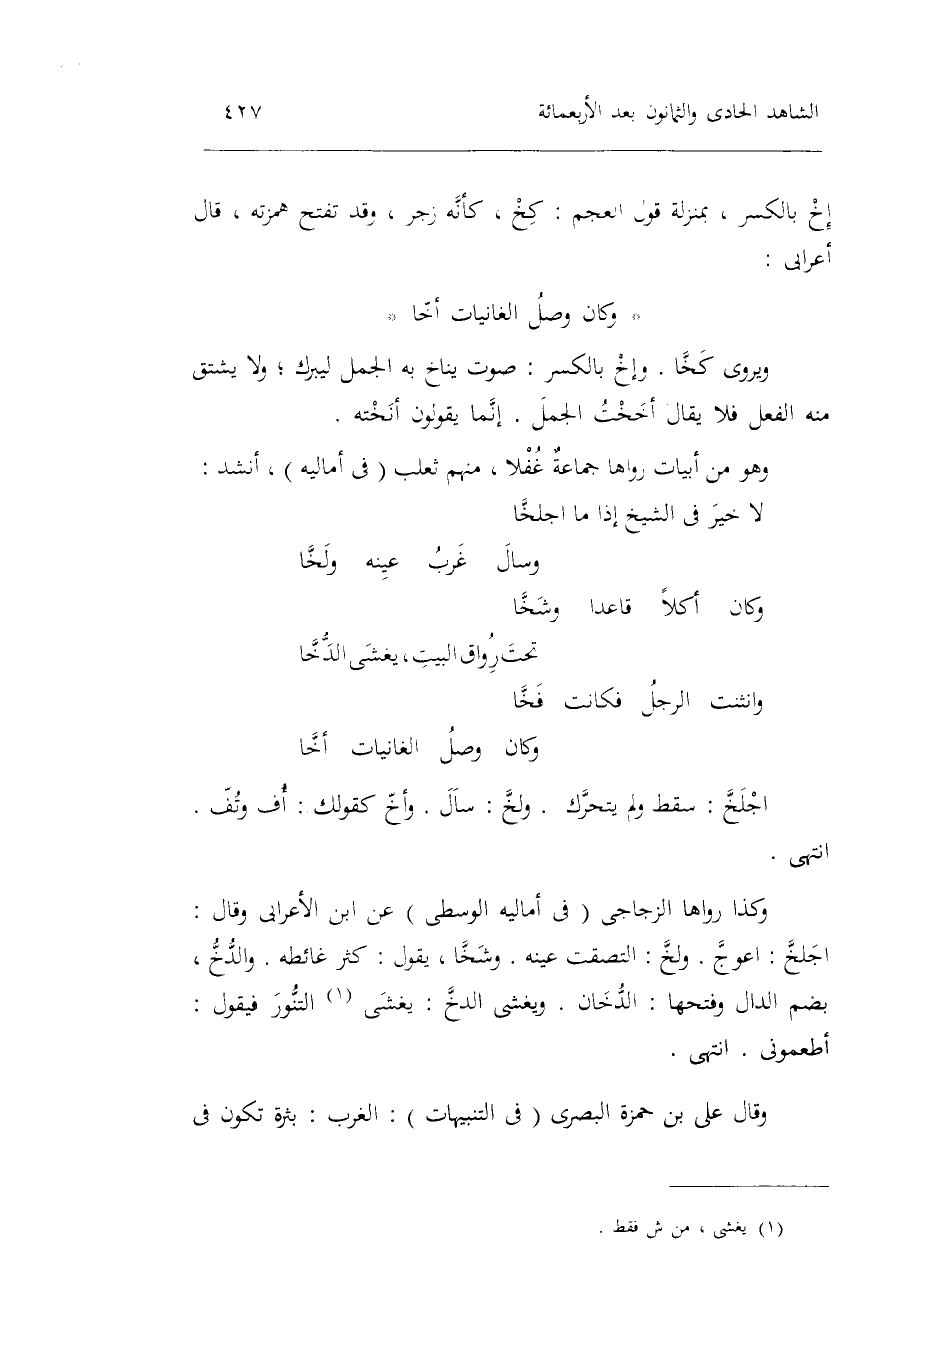 الشاهد الحادى والثمانون بعد الأربعمائة ٤٢٧
إِخْ بالكسر ، بمنزلة قول العجم : كِخْ ، كأنَّه زجر ، وقد تفتح همزته ، قال
أعرابى :
* وكان وصلُ الغانيات أخّا *
ويروى كَخَّا . وإخْ بالكسر : صوت يناخ به الجمل ليبرك ؛ ولا يشتق
منه الفعل فلا يقال أخَخْتُ الجملَ . إنَّما يقولون أنَخْته .
وهو من أبيات رواها جماعةٌ غُفْلا ، منهم ثعلب ( فى أماليه ) ، أنشد :
لا خيرَ فى الشيخ إذا ما اجلخَّا
وسالَ غَربُ عينِه ولَخَّا
وكان أكلاً قاعدا وشَخَّا
تحتَ رِواق البيتِ، يغشَى الدُّخَّا
وانثنت الرجلُ فكانت فَخَّا
وكان وصلُ الغانيات أخَّا
اجْلَخَّ : سقط ولم يتحرَّك . ولخَّ : سآلَ . وأخّ كقولك : أُف وتُفّ .
انتهى .
وكذا رواها الزجاجى ( فى أماليه الوسطى ) عن ابن الأعرابى وقال :
اجَلخَّ : اعوجَّ . ولخَّ : التصقت عينه . وشَخَّا ، يقول : كثر غائطه . والدُّخُّ ،
بضم الدال وفتحها : الدُّخَان . ويغشى الدخَّ : يغشَى (١) التنُّورَ فيقول :
أطعمونى . انتهى .
وقال على بن حمزة البصرى ( فى التنبيهات ) : الغرب : بثرة تكون فى
(١) يغشى ، من ش فقط .